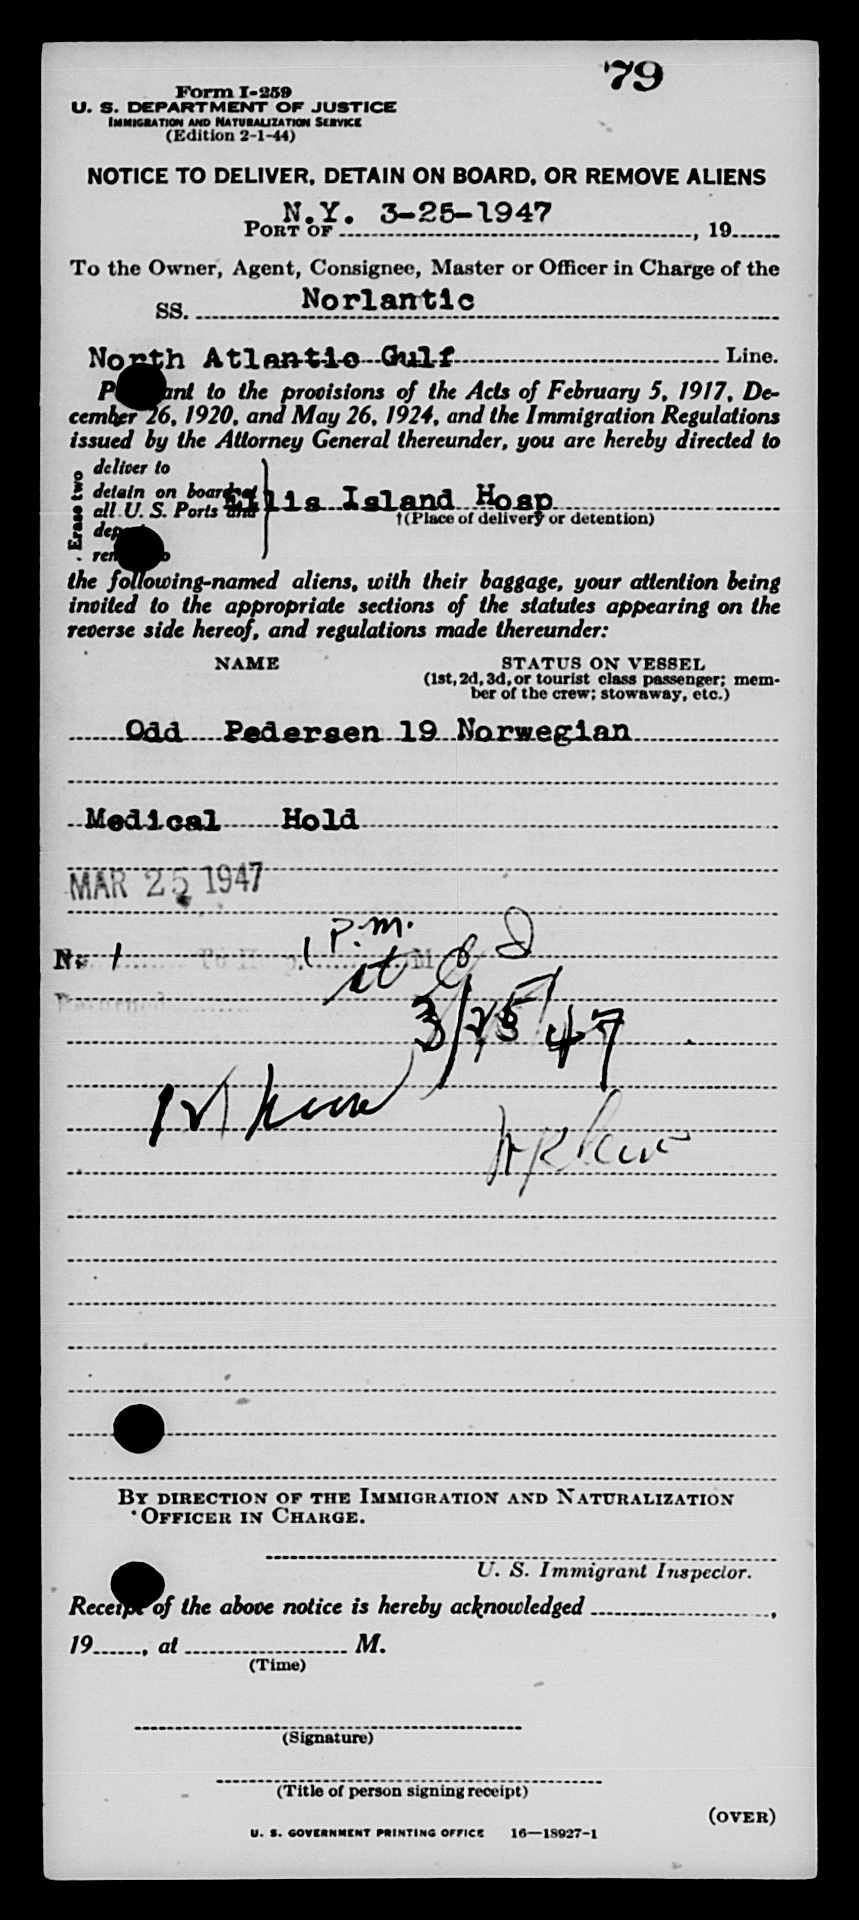 '79
Form I-259
U. S. DEPARTMENT OF JUSTICE
IMMIGRATION AND NATURALIZATION SERVICE
(Edition 2-1-44)
NOTICE TO DELIVER, DETAIN ON BOARD, OR REMOVE ALIENS
PORT OF N.Y. 3-25-1947, 19
To the Owner, Agent, Consignee, Master or Officer in Charge of the
SS. Norlantic
North Atlantic Gulf Line.
Pursuant to the provisions of the Acts of February 5, 1917, De-
cember 26, 1920, and May 26, 1924, and the Immigration Regulations
issued by the Attorney General thereunder, you are hereby directed to
Erase two
deliver to
detain on board at
all U. S. Ports and
Ellis Island Hosp
†(Place of delivery or detention)
the following-named aliens, with their baggage, your attention being
invited to the appropriate sections of the statutes appearing on the
reverse side hereof, and regulations made thereunder:
NAME STATUS ON VESSEL
(1st, 2d, 3d, or tourist class passenger; mem-
ber of the crew; stowaway, etc.)
Odd Pedersen 19 Norwegian
Medical Hold
MAR 25 1947
P.M.
No 1 To Hosp. 1 M
Returned
3/25/47
BY DIRECTION OF THE IMMIGRATION AND NATURALIZATION
OFFICER IN CHARGE.
U. S. Immigrant Inspector.
Receipt of the above notice is hereby acknowledged ,
19 , at M.
(Time)
(Signature)
(Title of person signing receipt)
(OVER)
U. S. GOVERNMENT PRINTING OFFICE 16—18927-1